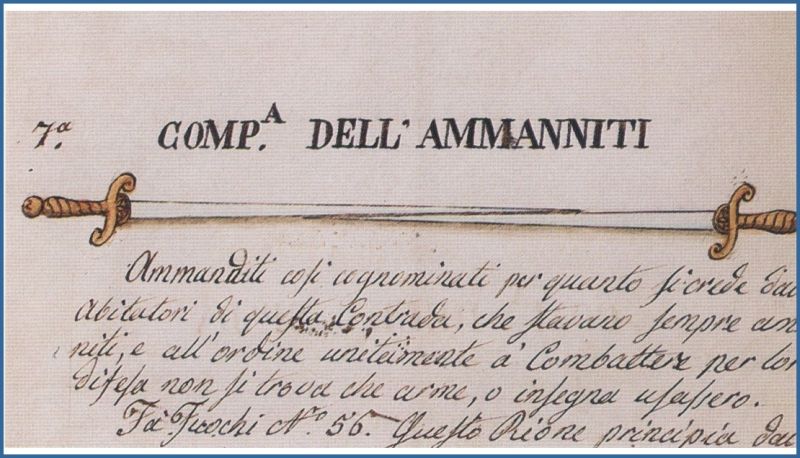 7.ª COMP.ᴬ DELL' AMMANNITI
Ammanditi così cognominati per quanto si crede dau
Abitatori di questa Contrada, che stavano sempre am
niti, e all'ordine unitamente à Combattere per lor
difesa non si trova che arme, o insegna usassero.
Fà Fuochi N.º 56. Questo Rione principia dau